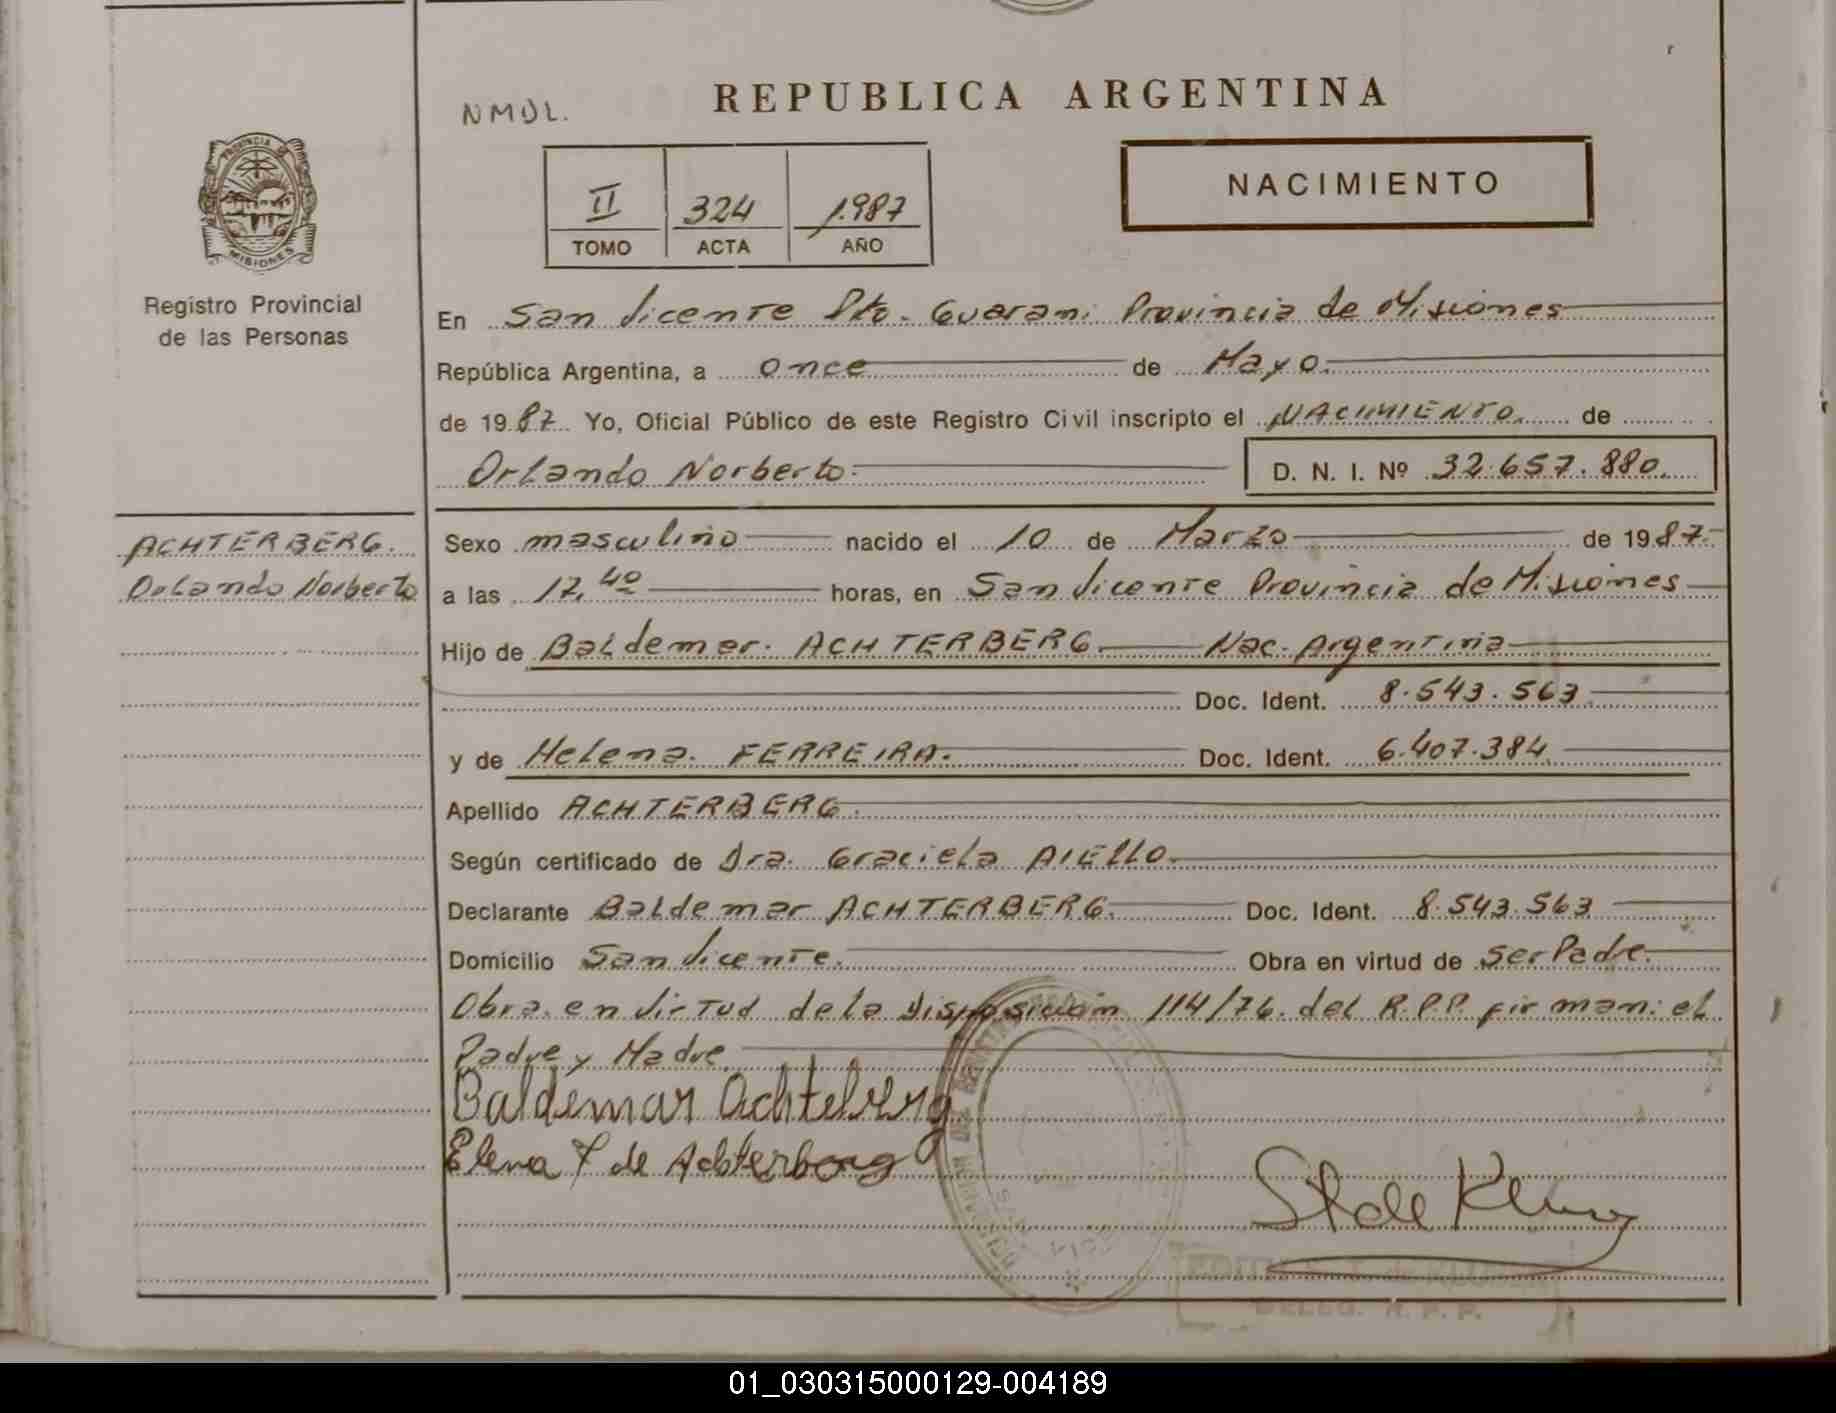 NMDL.
REPUBLICA ARGENTINA
II 324 1987
TOMO ACTA AÑO
NACIMIENTO
PROVINCIA DE MISIONES
Registro Provincial
de las Personas
En San Vicente Dto. Guarani Provincia de Misiones
República Argentina, a once de Mayo.
de 1987. Yo, Oficial Público de este Registro Civil inscripto el NACIMIENTO. de
Orlando Norberto. D. N. I. Nº 32.657.880.
ACHTERBERG.
Orlando Norberto
Sexo masculino nacido el 10 de Marzo de 1987.
a las 17,40 horas, en San Vicente Provincia de Misiones
Hijo de Baldemar. ACHTERBERG. Nac. Argentina
Doc. Ident. 8.543.563
y de Helena. FERREIRA. Doc. Ident. 6.407.384
Apellido ACHTERBERG.
Según certificado de Dra. Graciela AIELLO.
Declarante Baldemar ACHTERBERG. Doc. Ident. 8.543.563
Domicilio San Vicente. Obra en virtud de ser Padre.
Obra en Virtud de la Disposición 114/76. del R.P.P. firman: el
Padre y Madre.
Baldemar Achterberg
Elena F de Achterberg
St de Kluy
DELEG. R. P. P.
01_030315000129-004189